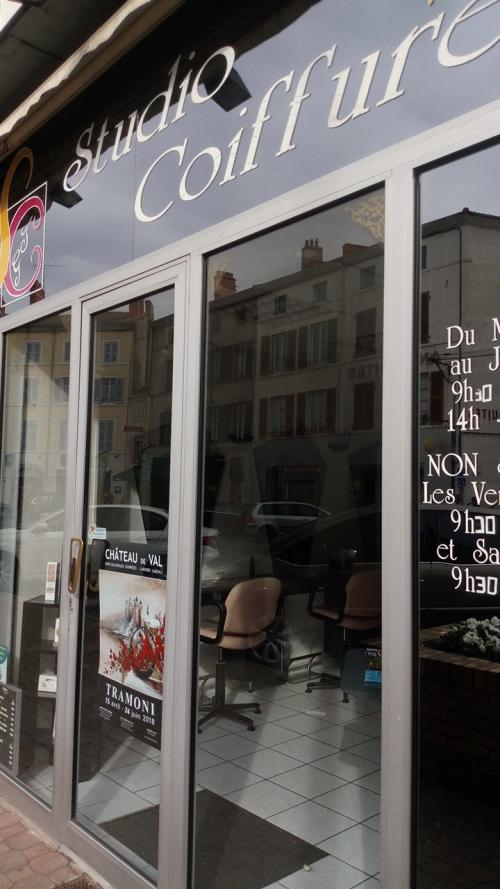 Studio
Coiffure
Du
au
9h30
14h
NON
Les
9h30
et
9h30
CHÂTEAU DE VAL
TRAMONI
15 avril - 24 juin 2018